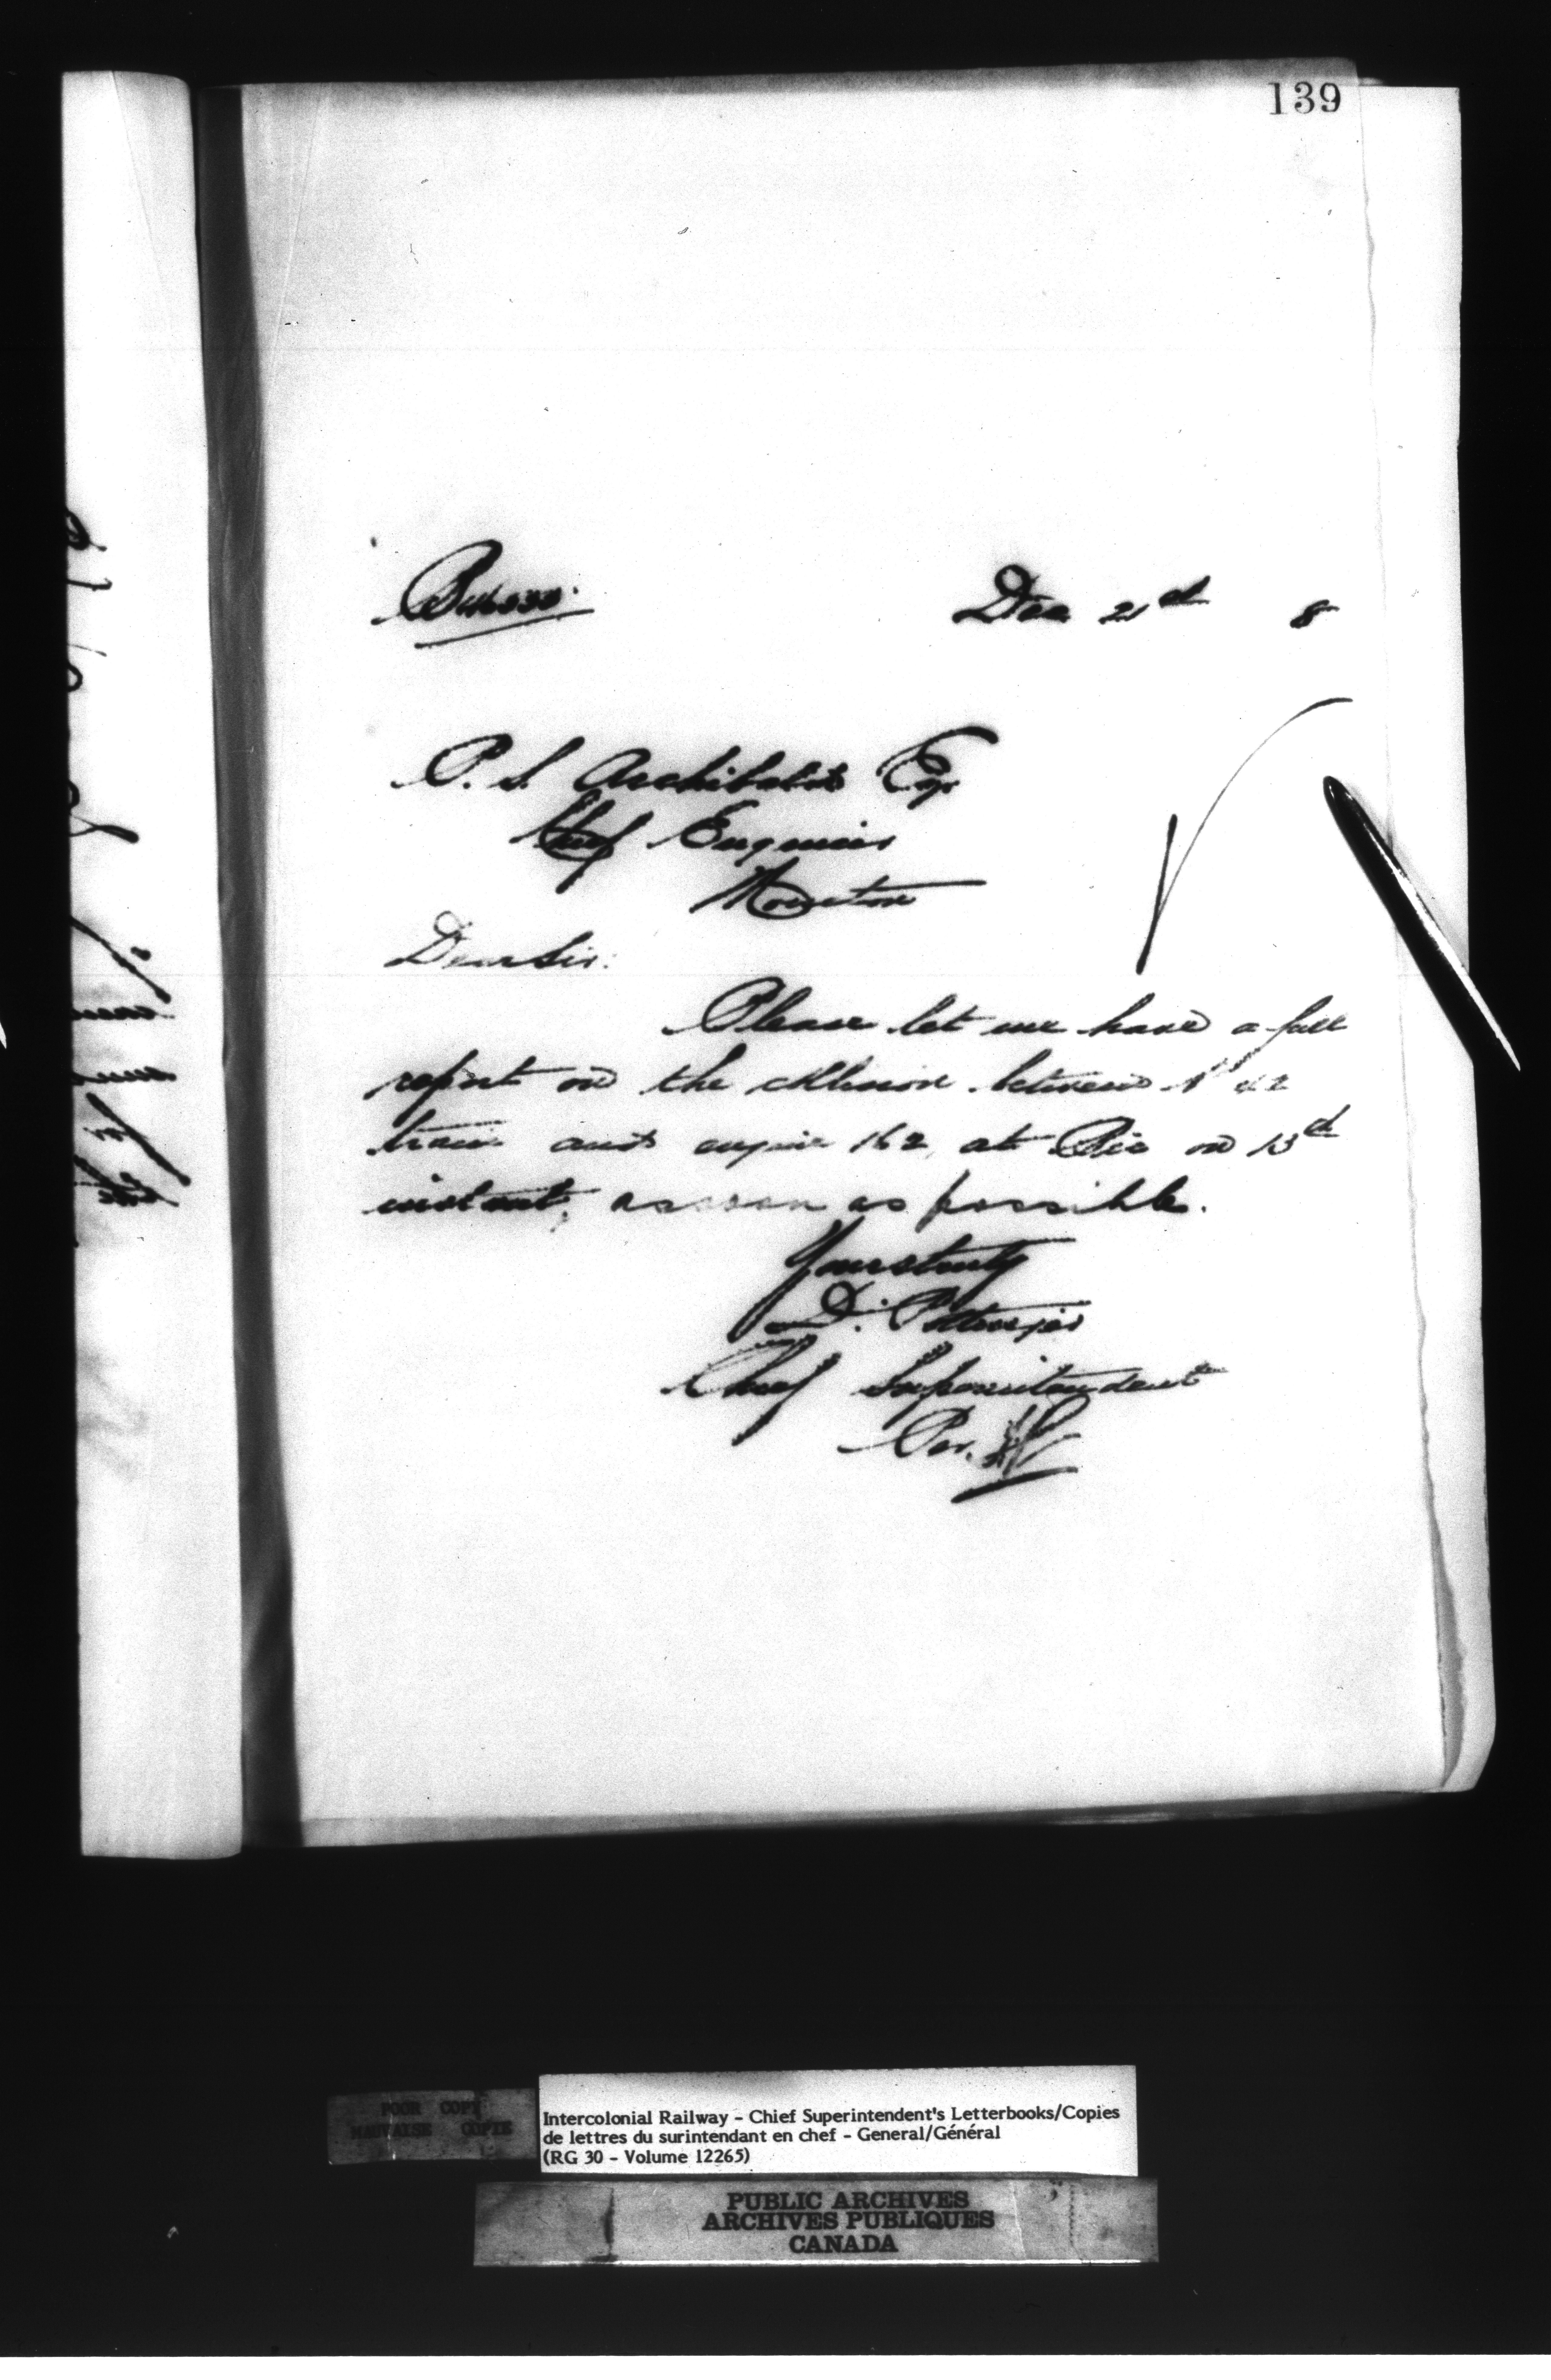 139
Dec 21st 8
P. S. Archibald Esq
Chief Engineer
Moncton
Dear Sir:
Please let me have a full
report on the collision between No 42
train and engine 162, at Bic on 13th
instant, as soon as possible.
Yours truly
D. Pottinger
Chief Superintendent
Per.
POOR COPY
MAUVAISE COPIE
Intercolonial Railway - Chief Superintendent's Letterbooks/Copies
de lettres du surintendant en chef - General/Général
(RG 30 - Volume 12265)
PUBLIC ARCHIVES
ARCHIVES PUBLIQUES
CANADA